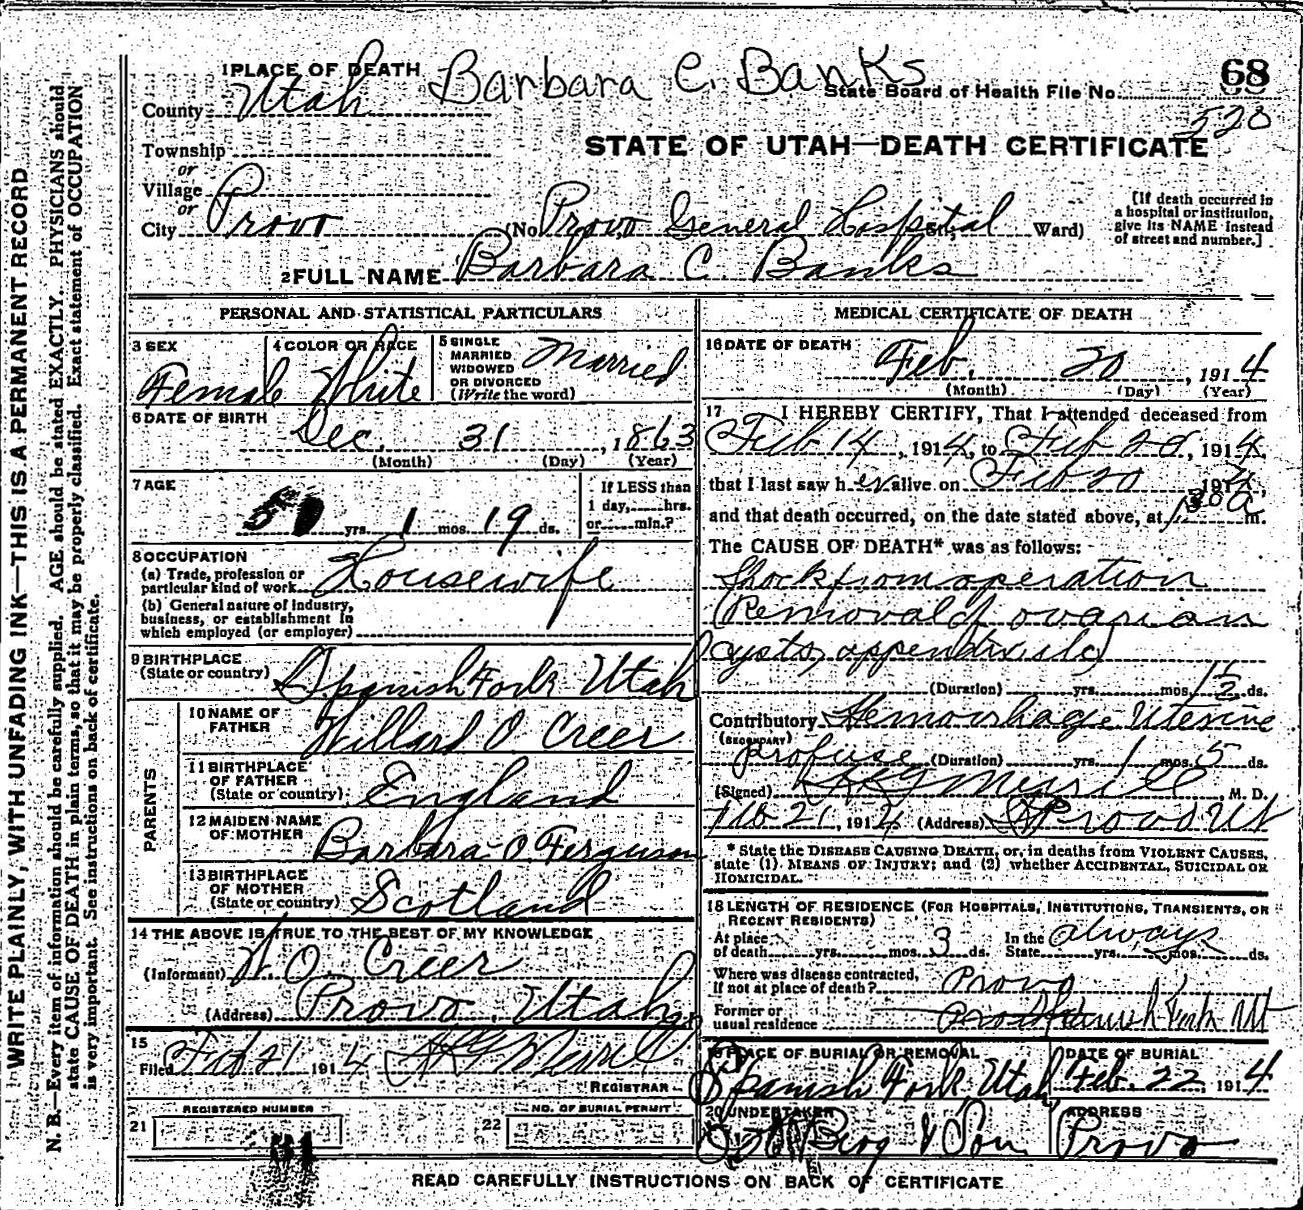 1 PLACE OF DEATH Barbara C. Banks State Board of Health File No. 68
County Utah 520
STATE OF UTAH—DEATH CERTIFICATE
Township
or
Village
or
City Provo (No. Provo General Hospital St., Ward)
[If death occurred in
a hospital or institution,
give its NAME instead
of street and number.]
2 FULL NAME Barbara C Banks
PERSONAL AND STATISTICAL PARTICULARS
3 SEX Female
4 COLOR OR RACE White
5 SINGLE
MARRIED
WIDOWED
OR DIVORCED
(Write the word) Married
6 DATE OF BIRTH Dec. 31, 1863
(Month) (Day) (Year)
7 AGE yrs. 1 mos. 19 ds.
If LESS than
1 day, hrs.
or min.?
8 OCCUPATION
(a) Trade, profession or
particular kind of work Housewife
(b) General nature of industry,
business, or establishment in
which employed (or employer)
9 BIRTHPLACE
(State or country) Spanish Fork Utah
PARENTS
10 NAME OF
FATHER Willard O Creer
11 BIRTHPLACE
OF FATHER
(State or country) England
12 MAIDEN NAME
OF MOTHER Barbara O Ferguson
13 BIRTHPLACE
OF MOTHER
(State or country) Scotland
14 THE ABOVE IS TRUE TO THE BEST OF MY KNOWLEDGE
(Informant) W O Creer
(Address) Provo, Utah
15
Filed Feb 21 1914 Merrill
REGISTRAR
REGISTERED NUMBER
21
NO. OF BURIAL PERMIT
22
MEDICAL CERTIFICATE OF DEATH
16 DATE OF DEATH Feb. 20, 1914
(Month) (Day) (Year)
17 I HEREBY CERTIFY, That I attended deceased from
Feb 14, 1914, to Feb 20, 1914,
that I last saw her alive on Feb 20 1914,
and that death occurred, on the date stated above, at 1 30 a m.
The CAUSE OF DEATH* was as follows:
Shock from operation
(Removal of ovarian
cysts, appendix etc)
(Duration) yrs. mos. ds.
Contributory Hemorrhage Uterine
(SECONDARY)
profuse (Duration) yrs. 1 mos. 5 ds.
(Signed) Merrill M. D.
Feb 21, 1914 (Address) Provo Ut
* State the DISEASE CAUSING DEATH, or, in deaths from VIOLENT CAUSES,
state (1) MEANS OF INJURY; and (2) whether ACCIDENTAL, SUICIDAL OR
HOMICIDAL.
18 LENGTH OF RESIDENCE (FOR HOSPITALS, INSTITUTIONS, TRANSIENTS, OR
RECENT RESIDENTS)
At place
of death yrs. mos. 3 ds. In the
State always yrs. mos. ds.
Where was disease contracted,
If not at place of death? Provo
Former or
usual residence Spanish Fork Ut
19 PLACE OF BURIAL OR REMOVAL
Spanish Fork, Utah
DATE OF BURIAL
Feb. 22, 1914
20 UNDERTAKER
Berg & Son
ADDRESS
Provo
READ CAREFULLY INSTRUCTIONS ON BACK OF CERTIFICATE
WRITE PLAINLY, WITH UNFADING INK—THIS IS A PERMANENT RECORD
N. B.—Every item of information should be carefully supplied. AGE should be stated EXACTLY. PHYSICIANS should
state CAUSE OF DEATH in plain terms, so that it may be properly classified. Exact statement of OCCUPATION
is very important. See instructions on back of certificate.